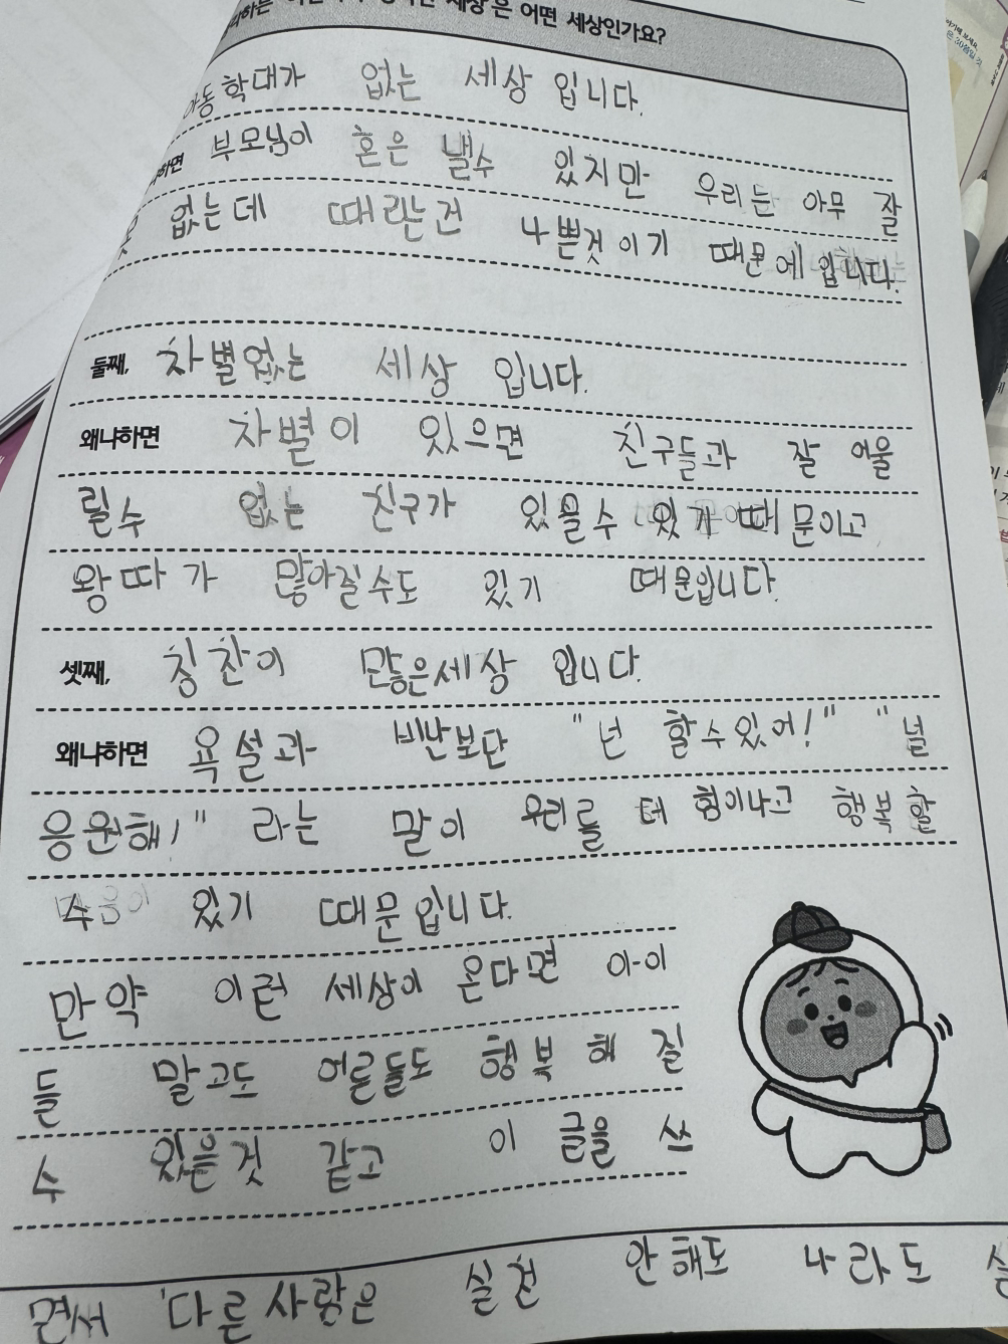 세상'은 어떤 세상인가요?
아동학대가 없는 세상 입니다.
부모님이 혼은 낼수 있지만 우리는 아무 잘
없는데 때리는건 나쁜것이기 때문에 입니다.
둘째, 차별없는 세상 입니다.
왜냐하면 차별이 있으면 친구들과 잘 어울
릴수 없는 친구가 있을수 있기 때문이고
왕따가 많아질수도 있기 때문입니다.
셋째, 칭찬이 많은세상 입니다.
왜냐하면 욕설과 비난보단 "넌 할수있어!" "널
응원해!" 라는 말이 우리를 더 힘이나고 행복할
수 있기 때문입니다.
만약 이런 세상이 온다면 아이
들 말고도 어른들도 행복해질
수 있을것 같고 이 글을 쓰
면서 '다른사람은 실천 안해도 나라도